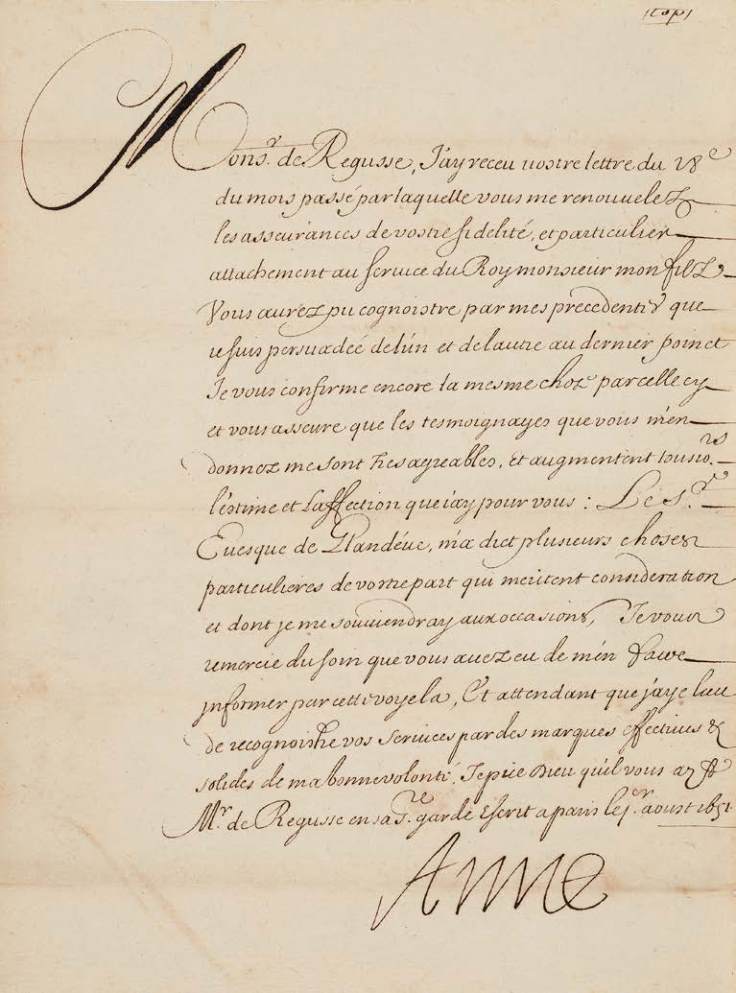 Copi
Monsr. de Regusse, J'ay receu vostre lettre du 28e
du mois passé par laquelle vous me renouvelez
les asseurances de vostre fidelité, et particulier
attachement au service du Roy monsieur mon filz
Vous aurez pu cognoistre par mes precedentes que
je suis persuadeé de lún et de lautre au dernier poinct
Je vous confirme encore la mesme chose par celle cy
et vous asseure que les tesmoignages que vous m'en
donnez me sont tres agreables, et augmentent tousiors
l'estime et l'affection que j'ay pour vous : Le Sr.
Evesque de Glandéve, m'a dict plusieurs choses
particulieres de vostre part qui meritent consideration
et dont je me souviendray aux occasions, Je vous
remercie du soin que vous avez eu de m'en faire
jnformer par cette voye la, Et attendant que j'aye lieu
de recognoistre vos services par des marques effectives &
solides de ma bonne volonté, Je prie Dieu qu'il vous ayt
Mr. de Regusse en sa Ste. garde Escrit a paris le jer. aoust 1651
Anne